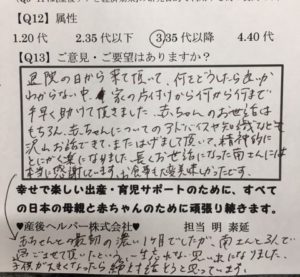 【Q12】属性
1.20代 2.35代以下 3.35代以降 4.40代
【Q13】ご意見・ご要望はありますか?
退院の日から来て頂いて、何をどうしたら良いか
わからない中、家の片付けから何から何まで
手早く助けて頂きました。赤ちゃんのお世話は
もちろん、赤ちゃんについてのアドバイスや知識なども
沢山お話できて、またはげまして頂いて、精神的に
とにかく楽になりました。長くお世話になった南さんには
本当に感謝しています。お食事も大変美味しかったです。
幸せで楽しい出産・育児サポートのために、すべて
の日本の母親と赤ちゃんのために頑張り続けます。
♥産後ヘルパー株式会社♥ 担当 明 素延
赤ちゃんとの最初の濃い1ヶ月でしたが、南さんと3人で
過ごさせて頂いたという、一生忘れない思い出になりました。
子供が大きくなったら